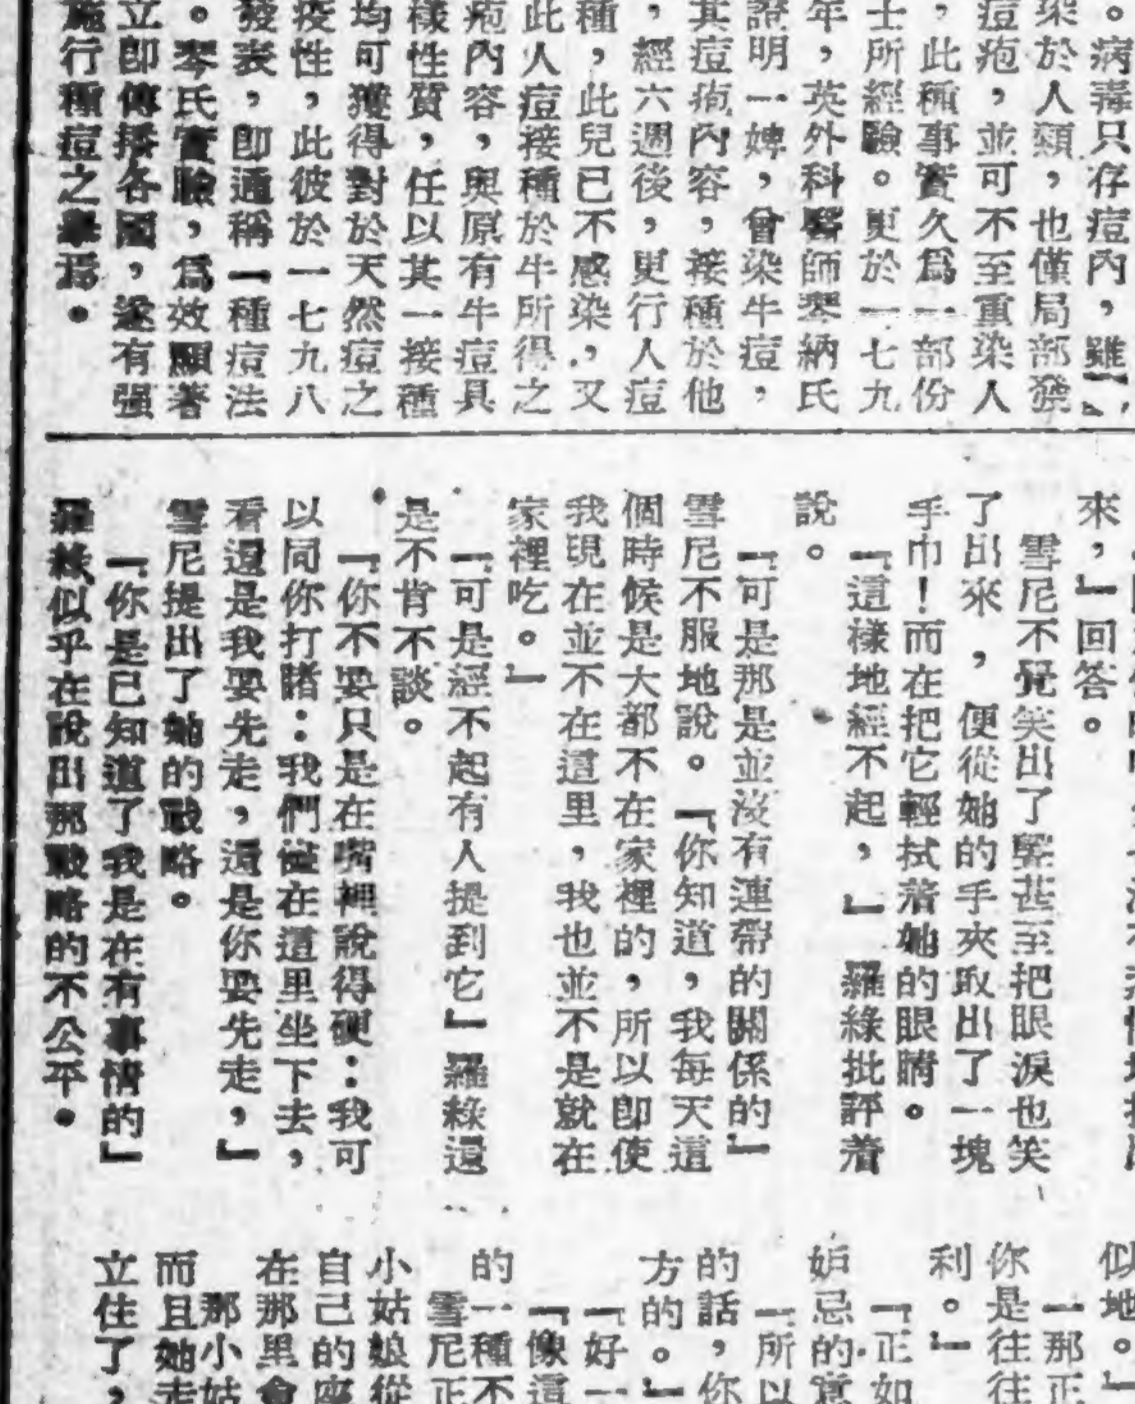 。病毒只存痘內，雖
染於人類，也僅局部發
痘疱，並可不至重染人
，此種事實久爲一部份
士所經驗。更於一七九
年，英外科醫師琴納氏
證明一婢，曾染牛痘，
其痘疱內容，接種於他
，經六週後，更行人痘
種，此兒已不感染，又
此人痘接種於牛所得之
疱內容，與原有牛痘具
樣性質，任以其一接種
均可獲得對於天然痘之
疫性，此彼於一七九八
發表，卽通稱「種痘法
。琴氏實驗，爲效顯著
立卽傳播各國，遂有强
施行種痘之舉焉。
來，」回答。
雪尼不覺笑出了聲甚至把眼淚也笑
了出來，便從她的手夾取出了一塊
手巾！而在把它輕拭着她的眼睛。
「這樣地經不起，」羅綠批評着
說。
「可是那是並沒有連帶的關係的」
雪尼不服地說。「你知道，我每天這
個時候是大都不在家裡的，所以卽使
我現在並不在這里，我也並不是就在
家裡吃。」
「可是經不起有人提到它」羅綠還
是不肯不談。
「你不要只是在嘴裡說得硬：我可
以同你打賭：我們儘在這里坐下去，
看還是我要先走，還是你要先走，」
雪尼提出了她的戰略。
「你是已知道了我是在有事情的」
羅綠似乎在說出那戰略的不公平。
似地。」
「那正
你是往往
利。」
「正如
妒忌的意
「所以
的話，你
方的。」
「好一
「像這
的一種不
雪尼正
小姑娘從
自己的座
在那里會
那小姑
而且她走
立住了，